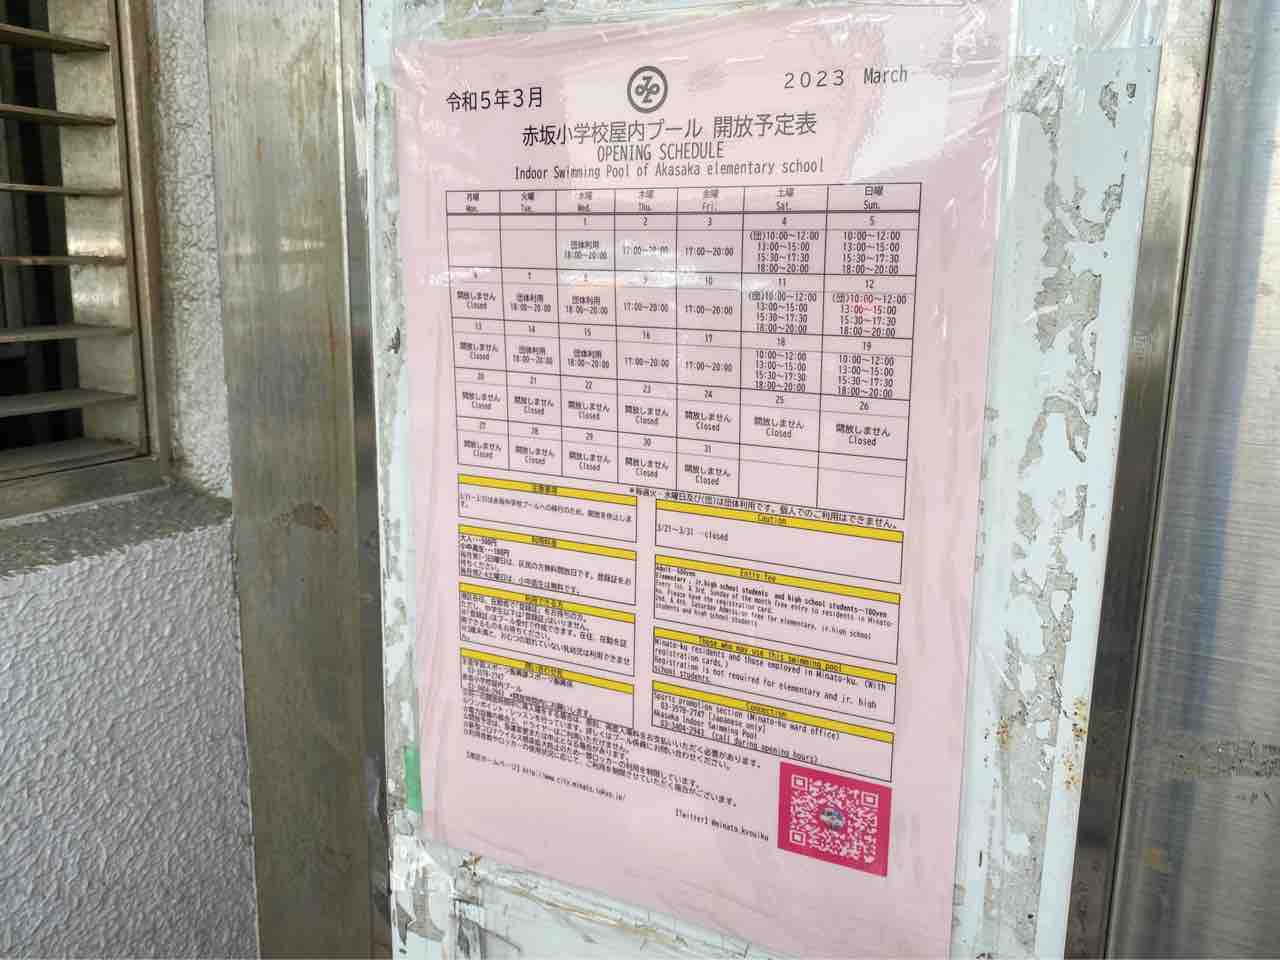 令和5年3月
2023 March
赤坂小学校屋内プール 開放予定表
OPENING SCHEDULE
Indoor Swimming Pool of Akasaka elementary school
月曜 火曜 水曜 木曜 金曜 土曜 日曜
Mon. Tue. Wed. Thu. Fri. Sat. Sun.
1 2 3 4 5
団体利用 18:00～20:00
17:00～20:00
17:00～20:00
(団)10:00～12:00 13:00～15:00 15:30～17:30 18:00～20:00
10:00～12:00 13:00～15:00 15:30～17:30 18:00～20:00
6 7 8 9 10 11 12
開放しません Closed
団体利用 18:00～20:00
団体利用 18:00～20:00
17:00～20:00
17:00～20:00
(団)10:00～12:00 13:00～15:00 15:30～17:30 18:00～20:00
(団)10:00～12:00 13:00～15:00 15:30～17:30 18:00～20:00
13 14 15 16 17 18 19
開放しません Closed
団体利用 18:00～20:00
団体利用 18:00～20:00
17:00～20:00
17:00～20:00
10:00～12:00 13:00～15:00 15:30～17:30 18:00～20:00
10:00～12:00 13:00～15:00 15:30～17:30 18:00～20:00
20 21 22 23 24 25 26
開放しません Closed
開放しません Closed
開放しません Closed
開放しません Closed
開放しません Closed
開放しません Closed
開放しません Closed
27 28 29 30 31
開放しません Closed
開放しません Closed
開放しません Closed
開放しません Closed
開放しません Closed
*毎週火・水曜日及び(団)は団体利用です。個人でのご利用はできません。
Caution
3/21～3/31 …closed
利用料金
大人…500円
小中高生…100円
Entry fee
Adult…500yen
Elementary, jr.high school students and high school students…100yen
Every 1st. & 3rd. Sunday of the month free entry to residents in Minato-
ku. Please have the registration card.
2nd. & 4th. Saturday Admission free for elementary, jr.high school
students and high school students
利用できる方
Those who may use this swimming pool
Minato-ku residents and those employed in Minato-ku. (With
registration cards.)
Registration is not required for elementary and jr. high
school students.
問い合わせ先
03-3578-2747
赤坂小学校屋内プール
03-3404-2943
Connection
Sports promotion section (Minato-ku ward office)
03-3578-2747 [Japanese only]
Akasaka Indoor Swimming Pool
03-3404-2943 (call during opening hours)
【港区ホームページ】http://www.city.minato.tokyo.jp/
【Twitter】@minato_kyouiku